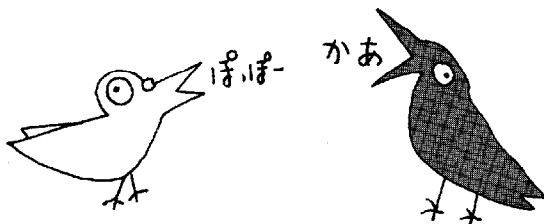 ぽっぽー
かあ